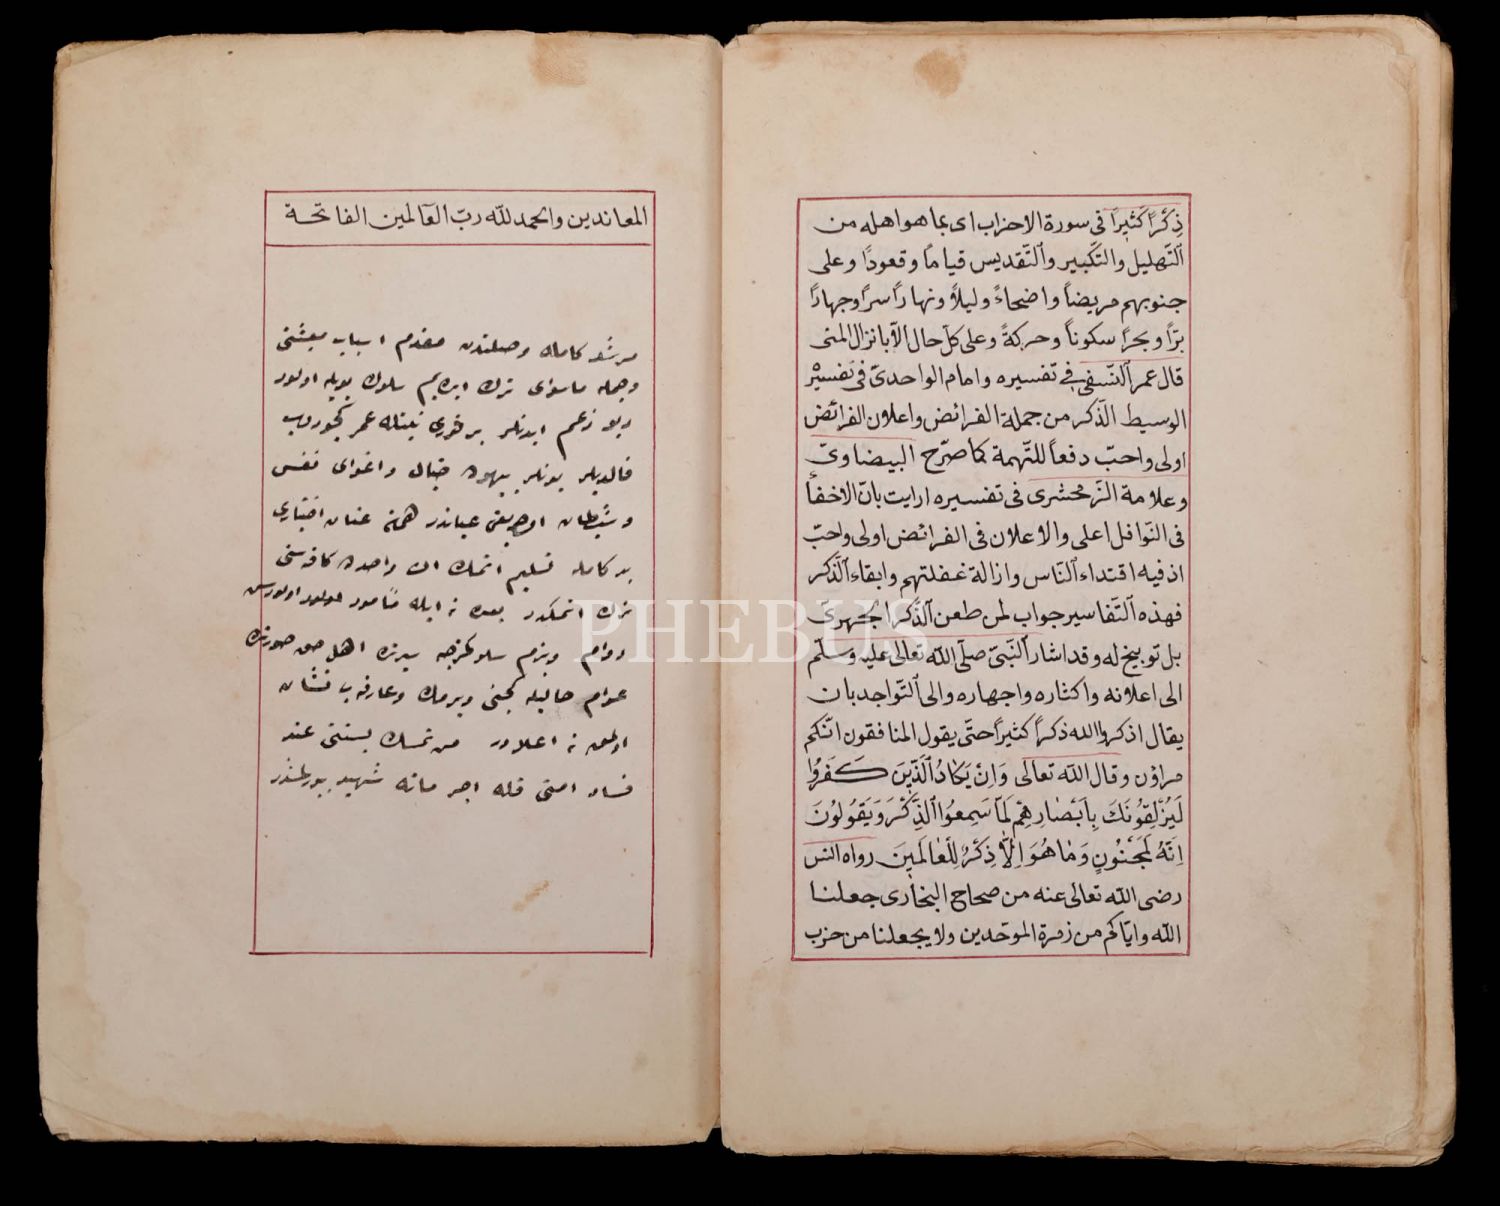 ذِكْرًا كَثِيرًا فى سورة الاحزاب اى بما هو اهله من
التّهليل والتّكبير والتّقديس قيامًا وقعودًا وعلى
جنوبهم مريضاً واضحاءً وليلاً ونهاراً سراً وجهاراً
برّا وبحرًا سكوناً وحركةً وعلى كلّ حال الّا بانزال المنى
قال عمر النّسفى فى تفسيره وامام الواحدىّ فى تفسير
الوسيط الذّكر من جملة الفرائض واعلان الفرائض
اولى واحبّ دفعاً للتّهمة كما صرّح البيضاوىّ
وعلامة الزّمخشرى فى تفسيره ارايت بانّ الاخفأ
فى النّوافل اعلى والاعلان فى الفرائض اولى واحبّ
اذ فيه اقتداء النّاس وازالة غفلتهم وابقاء الذّكر
فهذه التّفاسير جواب لمن طعن الذّكر الجهرىّ
بل توبيخ له وقد اشار النّبىّ صلّى اللّه تعالى عليه وسلّم
الى اعلانه واكثاره واجهاره والى التّواجد بان
يقال اذكروا اللّه ذكراً كثيراً حتّى يقول المنافقون انّكم
مراؤن وقال اللّه تعالى وَاِنْ يَكَادُ الَّذِينَ كَفَرُوا
لَيُزْلِقُونَكَ بِاَبْصَارِهِمْ لَمَّا سَمِعُوا الذِّكْرَ وَيَقُولُونَ
اِنَّهُ لَمَجْنُونٍ وَمَا هُوَ اِلَّا ذِكْرٌ لِلْعَالَمِينَ رواه انس
رضى اللّه تعالى عنه من صحاح البخارى جعلنا
اللّه وايّاكم من زمرة الموحّدين ولا يجعلنا من حزب
المعاندين والحمد للّه ربّ العالمين الفاتحة
مرشد كامله وصلتدن مقدم اسباب معيشتى
وجمله ماسواى ترك ايدهيم سلوك بويله اولور
ديو زعم ايدنلر بر قورى نيتله عمر كچوروب
قالديلر بونلر بيهوده خيال واغواى نفس
وشيطان اوجريغى عياندر همان عنان اختيارى
يد كامله تسليم اتمك ان واحده كافهسنى
ترك اتمكدر بعده نه ايله مأمور اولورسن
دوام ويرم سلوكمزجه سيرنه اهل حق صورتده
عوام حاليله كچنى ويرمك وعارف بى نشان
اولمق نه اعلادر من تمسك بسنتى عند
فساد امتى فله اجر مائه شهيد بيورلمشدر
PHEBUS